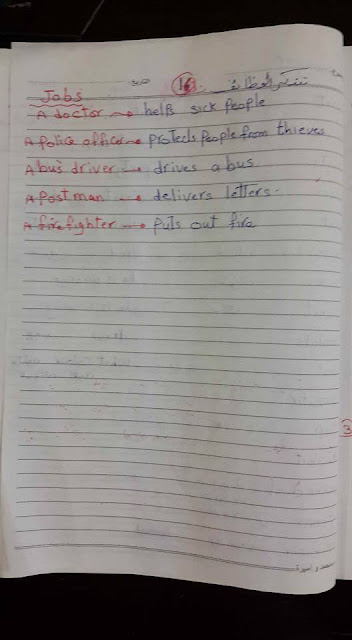 16
Jobs
A doctor → helps sick people
A police officer → protects people from thieves
A bus driver → drives a bus
A postman → delivers letters.
A firefighter → puts out fire
3